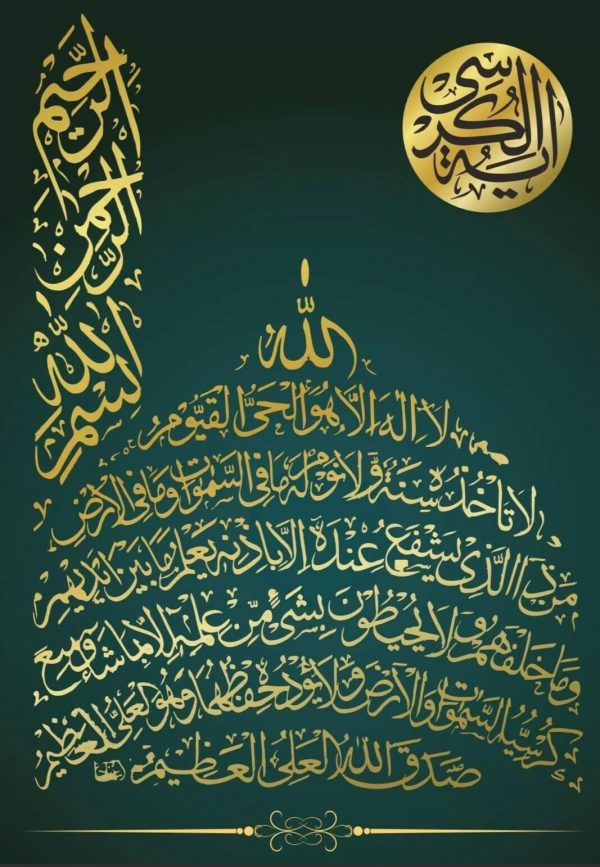 آية الكرسي
بسم الله الرحمن الرحيم
الله
لا اله الا هو الحي القيوم
لا تأخذه سنة ولا نوم له ما في السموات وما في الأرض
من ذا الذي يشفع عنده الا باذنه يعلم ما بين ايديهم
وما خلفهم ولا يحيطون بشيء من علمه الا بما شاء وسع
كرسيه السموات والارض ولا يؤده حفظهما وهو العلي العظيم
صدق الله العلي العظيم